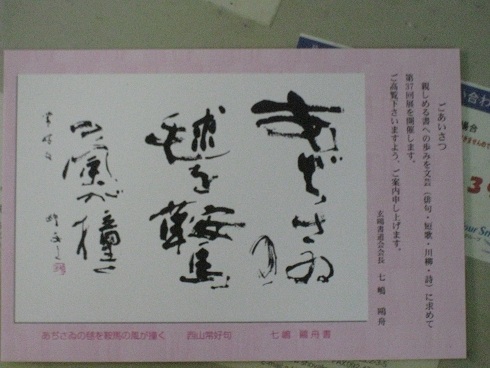 ごあいさつ
親しめる書への歩みを文芸（俳句・短歌・川柳・詩）に求めて
第37回展を開催します。
ご高覧下さいますよう、ご案内申し上げます。
玄鴎書道会会長　七嶋　鴎舟
あぢさゐの
毬を鞍馬
の風が撞く
あぢさゐの毬を鞍馬の風が撞く　西山常好句　七嶋　鴎舟書